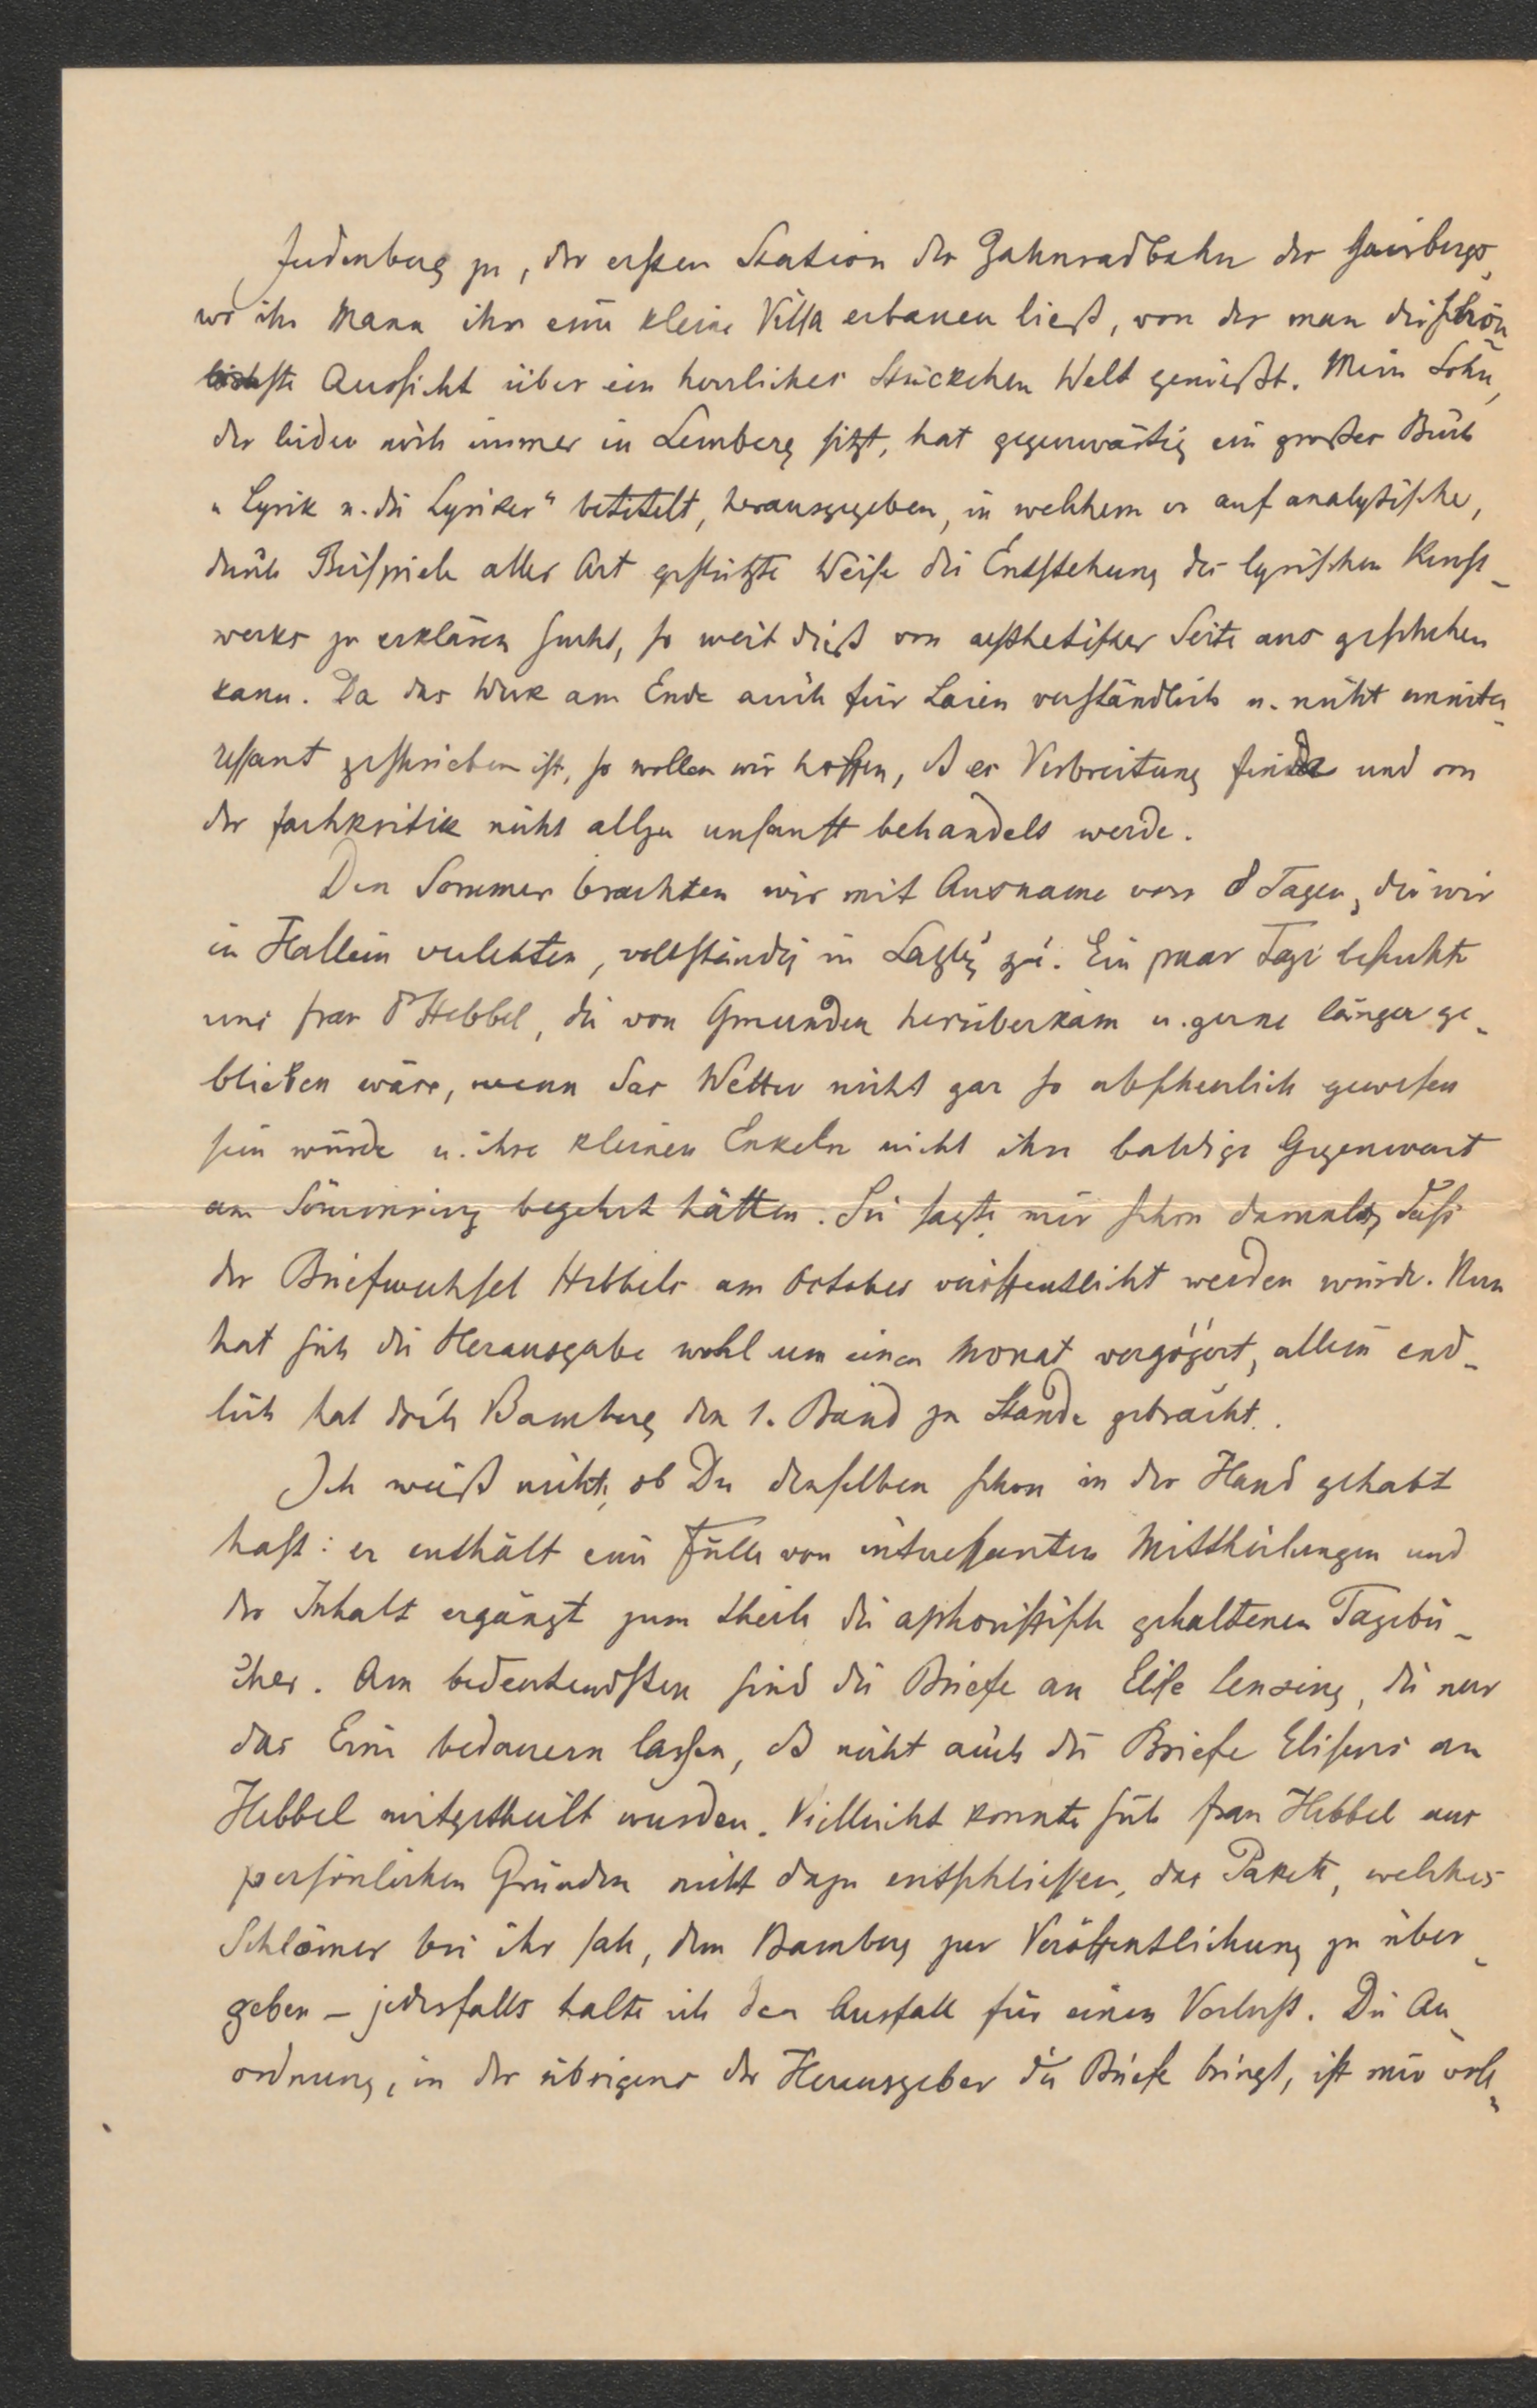 Judenberg zu, der ersten Station der Zahnradbahn des Gaisbergs,
wo ihr Mann ihr eine kleine Villa erbauen ließ, von der man die schön
ste Aussicht über ein herrliches Stückchen Welt genießt. Mein Sohn,
der leider noch immer in Lemberg sitzt, hat gegenwärtig ein großes Buch
„Lyrik u. die Lyriker" betitelt, herausgegeben, in welchem er auf analytische,
durch Beispiele aller Art gestützte Weise die Entstehung des lyrischen Kunst-
werks zu erklären sucht, so weit dieß von aesthetischer Seite aus geschehen
kann. Da das Werk am Ende auch für Laien verständlich u. nicht uninte-
ressant geschrieben ist, so wollen wir hoffen, ds es Verbreitung finde und von
der Fachkritik nicht allzu unsanft behandelt werde.
Den Sommer brachten wir mit Ausname von 8 Tagen, die wir
in Hallein verlebten, vollständig in zu. Ein paar Tage besuchte
uns Frau Hebbel, die von Gmunden herüberkam u. gerne länger ge-
blieben wäre, wenn das Wetter nicht gar so abscheulich gewesen
sein würde u. ihre kleinen Enkeln nicht ihre baldige Gegenwart
am Sömmring begehrt hätten. Sie sagte mir schon damals, daß
der Briefwechsel Hebbels am October veröffentlicht werden würde. Nun
hat sich die Herausgabe wohl um einen Monat verzögert, allein end-
lich hat doch Bamberg den 1. Band zu Stande gebracht.
Ich weiß nicht, ob Du denselben schon in der Hand gehabt
hast: er enthält eine Fülle von interessanten Mittheilungen und
der Inhalt ergänzt zum theile die aphoristisch gehaltenen Tagebü-
cher. Am bedeutendsten sind die Briefe an Elise Lensing, die nur
das Eine bedauern lassen, ds nicht auch die Briefe Elisens an
Hebbel mitgetheilt wurden. Vielleicht konnte sich Frau Hebbel aus
persönlichen Gründen nicht dazu entschließen, das Paket, welches
Schlömer bei ihr sah, dem Bamberg zur Veröffentlichung zu über-
geben – jedesfalls halte ich den Ausfall für einen Verlust. Die An-
ordnung, in der übrigens der Herausgeber die Briefe bringt, ist mir voll-